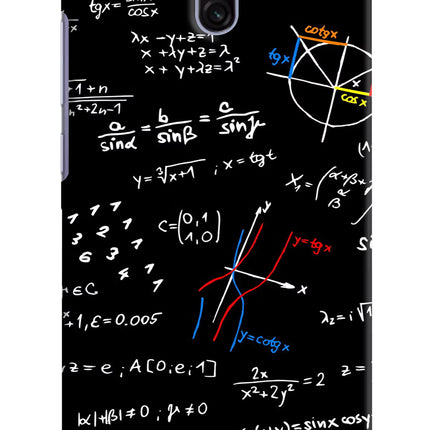 tgx = sinx/cosx
λx - y + z = 1
x + λy + z = λ
x + y + λz = λ²
cotgx
tgx
x
cosx
-1 + n
n² + 2n - 1
a/sinα = b/sinβ = c/sinγ
y = ³√x+1 ; x = tgt
(1
X₁ = (α+β+
α
β
1 1 1
3 2 1
6 3 1
4 1
1
C = (0,1
1,0)
y
x
y = tgx
y = cotgx
∈C
+1, ε = 0.005
λ₂ = i√1
z = e ; A[0; e; 1]
2x/x²+2y² = 2
z =
|α|+|β| ≠ 0 ; γ ≠ 0
= sinx cosy